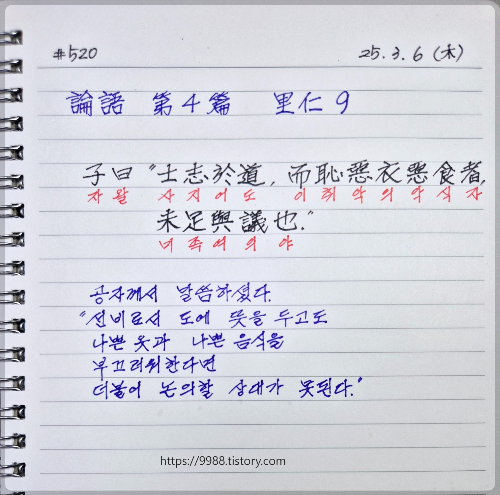 #520 25.3.6 (木)
論語 第4篇 里仁 9
子曰 "士志於道, 而恥惡衣惡食者,
자왈 사지어도 이치악의악식자
未足與議也."
미족여의야
공자께서 말씀하셨다.
"선비로서 도에 뜻을 두고도
나쁜 옷과 나쁜 음식을
부끄러워한다면
더불어 논의할 상대가 못된다."
https://9988.tistory.com